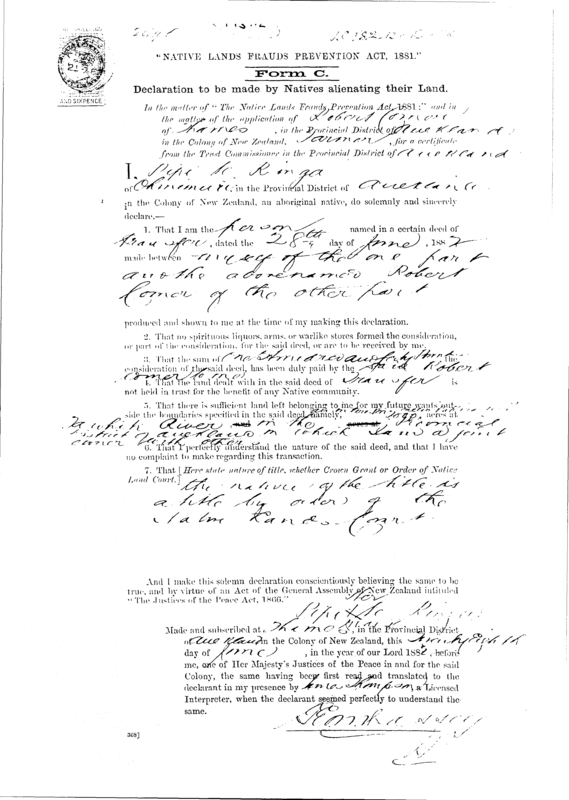 "NATIVE LANDS FRAUDS PREVENTION ACT, 1881."
Form C.
Declaration to be made by Natives alienating their Land.
AND SIXPENCE
In the matter of "The Native Lands Frauds Prevention Act, 1881:" and in
the matter of the application of Robert Comer
of Thames, in the Provincial District of Auckland
in the Colony of New Zealand, , for a certificate
from the Trust Commissioner in the Provincial District of Auckland
I, Pipi te Ringa
of Ohinemuri, in the Provincial District of Auckland
in the Colony of New Zealand, an aboriginal native, do solemnly and sincerely
declare,—
1. That I am the person named in a certain deed of
transfer, dated the 28th day of June, 1882
made between myself of the one part
and the abovenamed Robert
Comer of the other part
produced and shown to me at the time of my making this declaration.
2. That no spirituous liquors, arms, or warlike stores formed the consideration,
or part of the consideration, for the said deed, or are to be received by me.
3. That the sum of One hundred and the
consideration of the said deed, has been duly paid by the said Robert
Comer to me
4. That the land dealt with in the said deed of Transfer is
not held in trust for the benefit of any Native community.
5. That there is sufficient land left belonging to me for my future wants out-
side the boundaries specified in the said deed, namely, acres at
River in the Provincial
District of Auckland in which land a joint
owner with others
6. That I perfectly understand the nature of the said deed, and that I have
no complaint to make regarding this transaction.
7. That [Here state nature of title, whether Crown Grant or Order of Native
Land Court.] the nature of the title is
a title by order of the
Native Lands Court
And I make this solemn declaration conscientiously believing the same to be
true, and by virtue of an Act of the General Assembly of New Zealand intituled
"The Justices of the Peace Act, 1866."
Pipi te Ringa
Made and subscribed at Thames, in the Provincial District
of Auckland in the Colony of New Zealand, this twenty eighth
day of June, in the year of our Lord 1882, before
me, one of Her Majesty's Justices of the Peace in and for the said
Colony, the same having been first read and translated to the
declarant in my presence by , a Licensed
Interpreter, when the declarant seemed perfectly to understand the
same.
368]